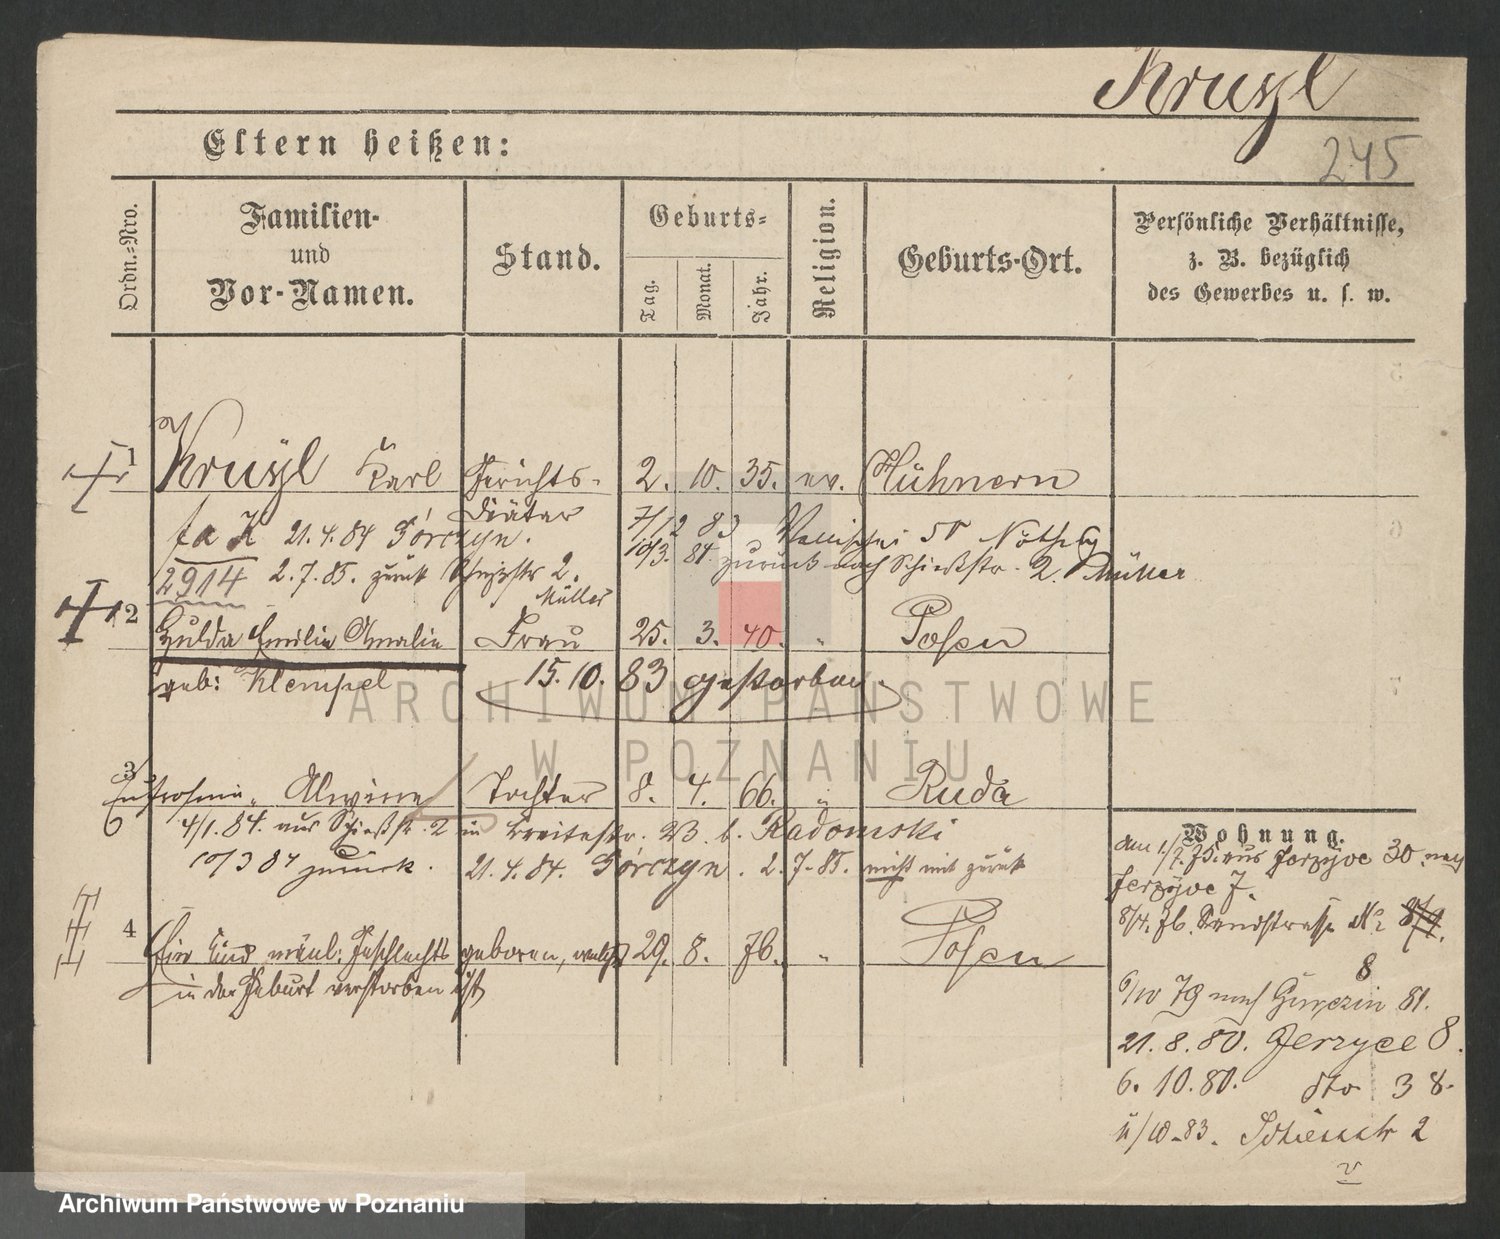 Kruszl
245
Eltern heißen:
Ordn.-Nro.
Familien-
und
Vor-Namen.
Stand.
Geburts-
Tag.
Monat.
Jahr.
Religion.
Geburts-Ort.
Persönliche Verhältnisse,
z. B. bezüglich
des Gewerbes u. s. w.
1 Karl Gerichts- 2. 10. 35. ev. Hühnern
Diätar
21.4.84 Górczyn. 7/12 83
10/3. 84. zurück nach Schießstr. 2. Müller
2914 2.7.85. zurück 2.
Müller
2 Hulda Emilie Amalie Frau 25. 3. 40. " Posen
geb: Klempel 15. 10. 83 gestorben.
3 Eufrosine, Alwine Tochter 8. 4. 66. " Ruda
4/1. 84. aus Schießstr. 2 in Breitestr. 23. b. Radomski
10/3 84 zurück. 21. 4. 84. Górczyn. 2.7.85. nicht mit zurück
4 Ein Kind männl. Geschlechts geboren, welches 29. 8. 76. " Posen
in der Geburt verstorben ist
Wohnung.
den 1/7. 75. aus Jerzyce 30. nach
Jerzyce 7.
8/4. 76. Sandstrasse No
8
6/10 79 nach Gurczin 81.
21. 8. 80. Jerzyce 8.
6. 10. 80. dto 38.
11/10-83. Schiesstr 2
ARCHIWUM PAŃSTWOWE
W POZNANIU
Archiwum Państwowe w Poznaniu